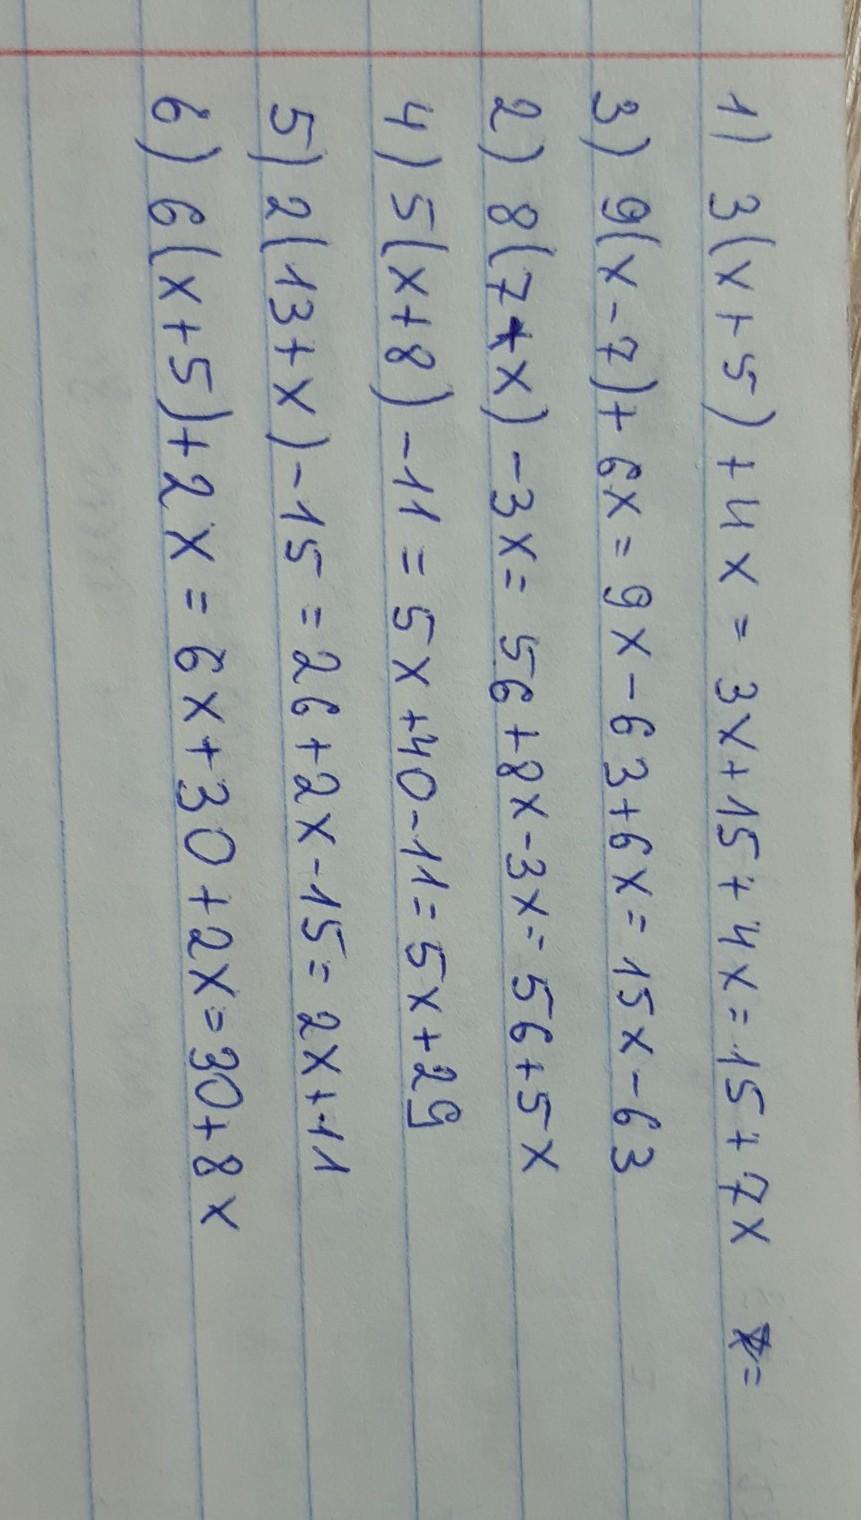 1) 3(x+5)+4x = 3x+15+4x=15+7x =
3) 9(x-7)+6x=9x-63+6x=15x-63
2) 8(7+x)-3x= 56+8x-3x=56+5x
4) 5(x+8)-11 = 5x+40-11=5x+29
5) 2(13+x)-15 = 26+2x-15=2x+11
6) 6(x+5)+2x = 6x+30+2x=30+8x